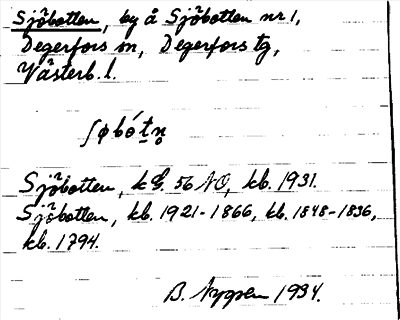 Sjöbotten, by å Sjöbotten nr 1,
Degerfors sn, Degerfors tg,
Västerb. l.
ʃøbót̲n̥
Sjöbotten, kG. 56 NO, kb. 1931.
Sjöbotten, kb. 1921-1866, kb. 1848-1836,
kb. 1794.
B. 1934.